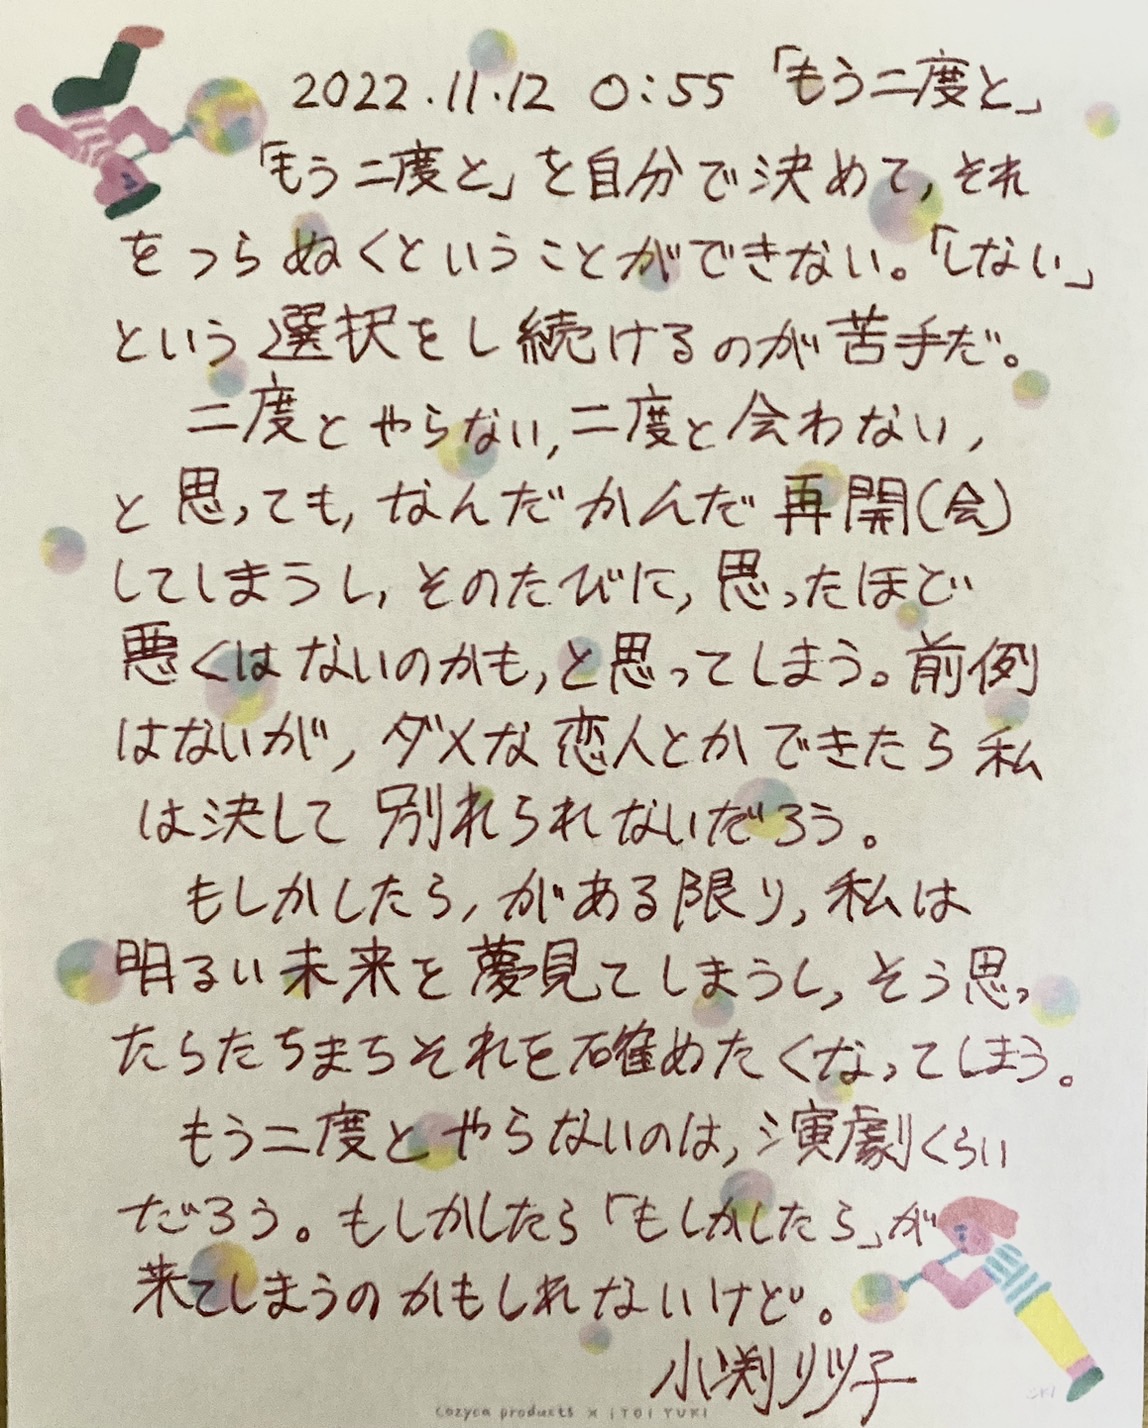 2022.11.12 0:55 「もう二度と」
「もう二度と」を自分で決めて, それ
をつらぬくということができない。「しない」
という選択をし続けるのが苦手だ。
二度とやらない, 二度と会わない,
と思っても, なんだかんだ再開(会)
してしまうし, そのたびに, 思ったほど
悪くはないのかも, と思ってしまう。前例
はないが, ダメな恋人とかできたら私
は決して別れられないだろう。
もしかしたら, がある限り, 私は
明るい未来を夢見てしまうし, そう思っ
たらたちまちそれを確めたくなってしまう。
もう二度とやらないのは, 演劇くらい
だろう。もしかしたら「もしかしたら」が
来てしまうのかもしれないけど。
小渕リツ子
Cozyca products × iTOi YUKI